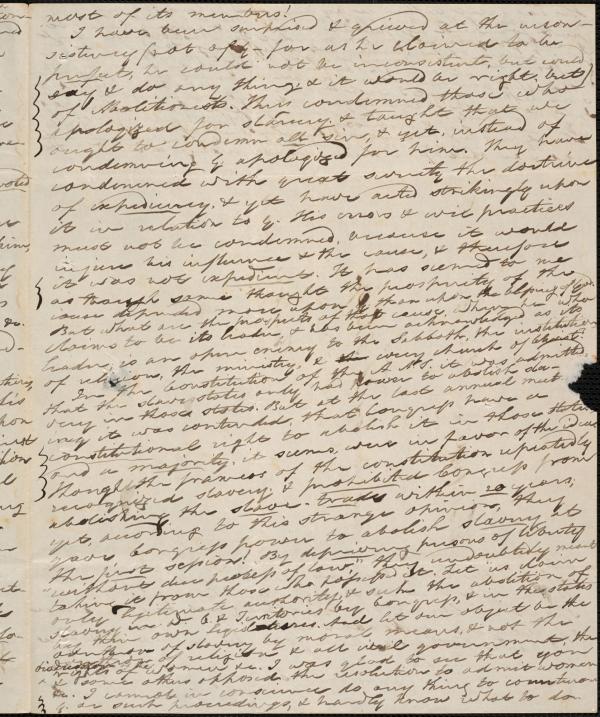 most of its members!
I have been surprised & grieved at the incon-
sistency (not of G— for as he claimed to be
perfect, he could not be inconsistent, but could
say & do any thing & it would be right, but)
of Abolitionists. They condemned those who
apologized for slavery, & taught that we
ought to condemn all sin, & yet, instead of
condemning G. apologized for him. They have
condemned with great severity the doctrine
of expediency, & yet have acted strikingly upon
it in relation to G. His errors & evil practices
must not be condemned, because it would
injure his influence & the cause, & therefore
it was not expedient. It has seemed to me
as though some thought the prosperity of the
cause depended more upon G. than upon the
But what are the prospects of that cause, when he who
claims to be its leader & has been acknowledged as its
leader, is an open enemy to the Sabbath, the institutions
of religion, the ministry, & every church of Christ.
In the Constitution of the A.A.S. it was admitted,
that the slave states only, had power to abolish sla-
very in those states. But at the last annual meet-
ing it was contended, that Congress have a
constitutional right to abolish it in those states
and a majority, it seems, were in favor of the idea
though the framers of the constitution repeatedly
recognized slavery & prohibited Congress from
abolishing the slave-trade within 20 years,
yet, according to this strange opinion, they
gave Congress power to abolish slavery at
the first session! By depriving persons of liberty
"without due process of law," they undoubtedly meant
taking it from those who possessed it. Let us claim
only legitimate authority, & seek the abolition of
slavery in D. C. & Territories by Congress, & in the states
by their own legislatures. And let our object be the
abolition of slavery by moral means, & not the
of religion & all civil government, the
rights of women, &c. I was glad to see that you
& some others opposed the resolution to admit women
&c. I cannot in conscience do any thing to countenance
G. or such proceedings, & hardly know what to do